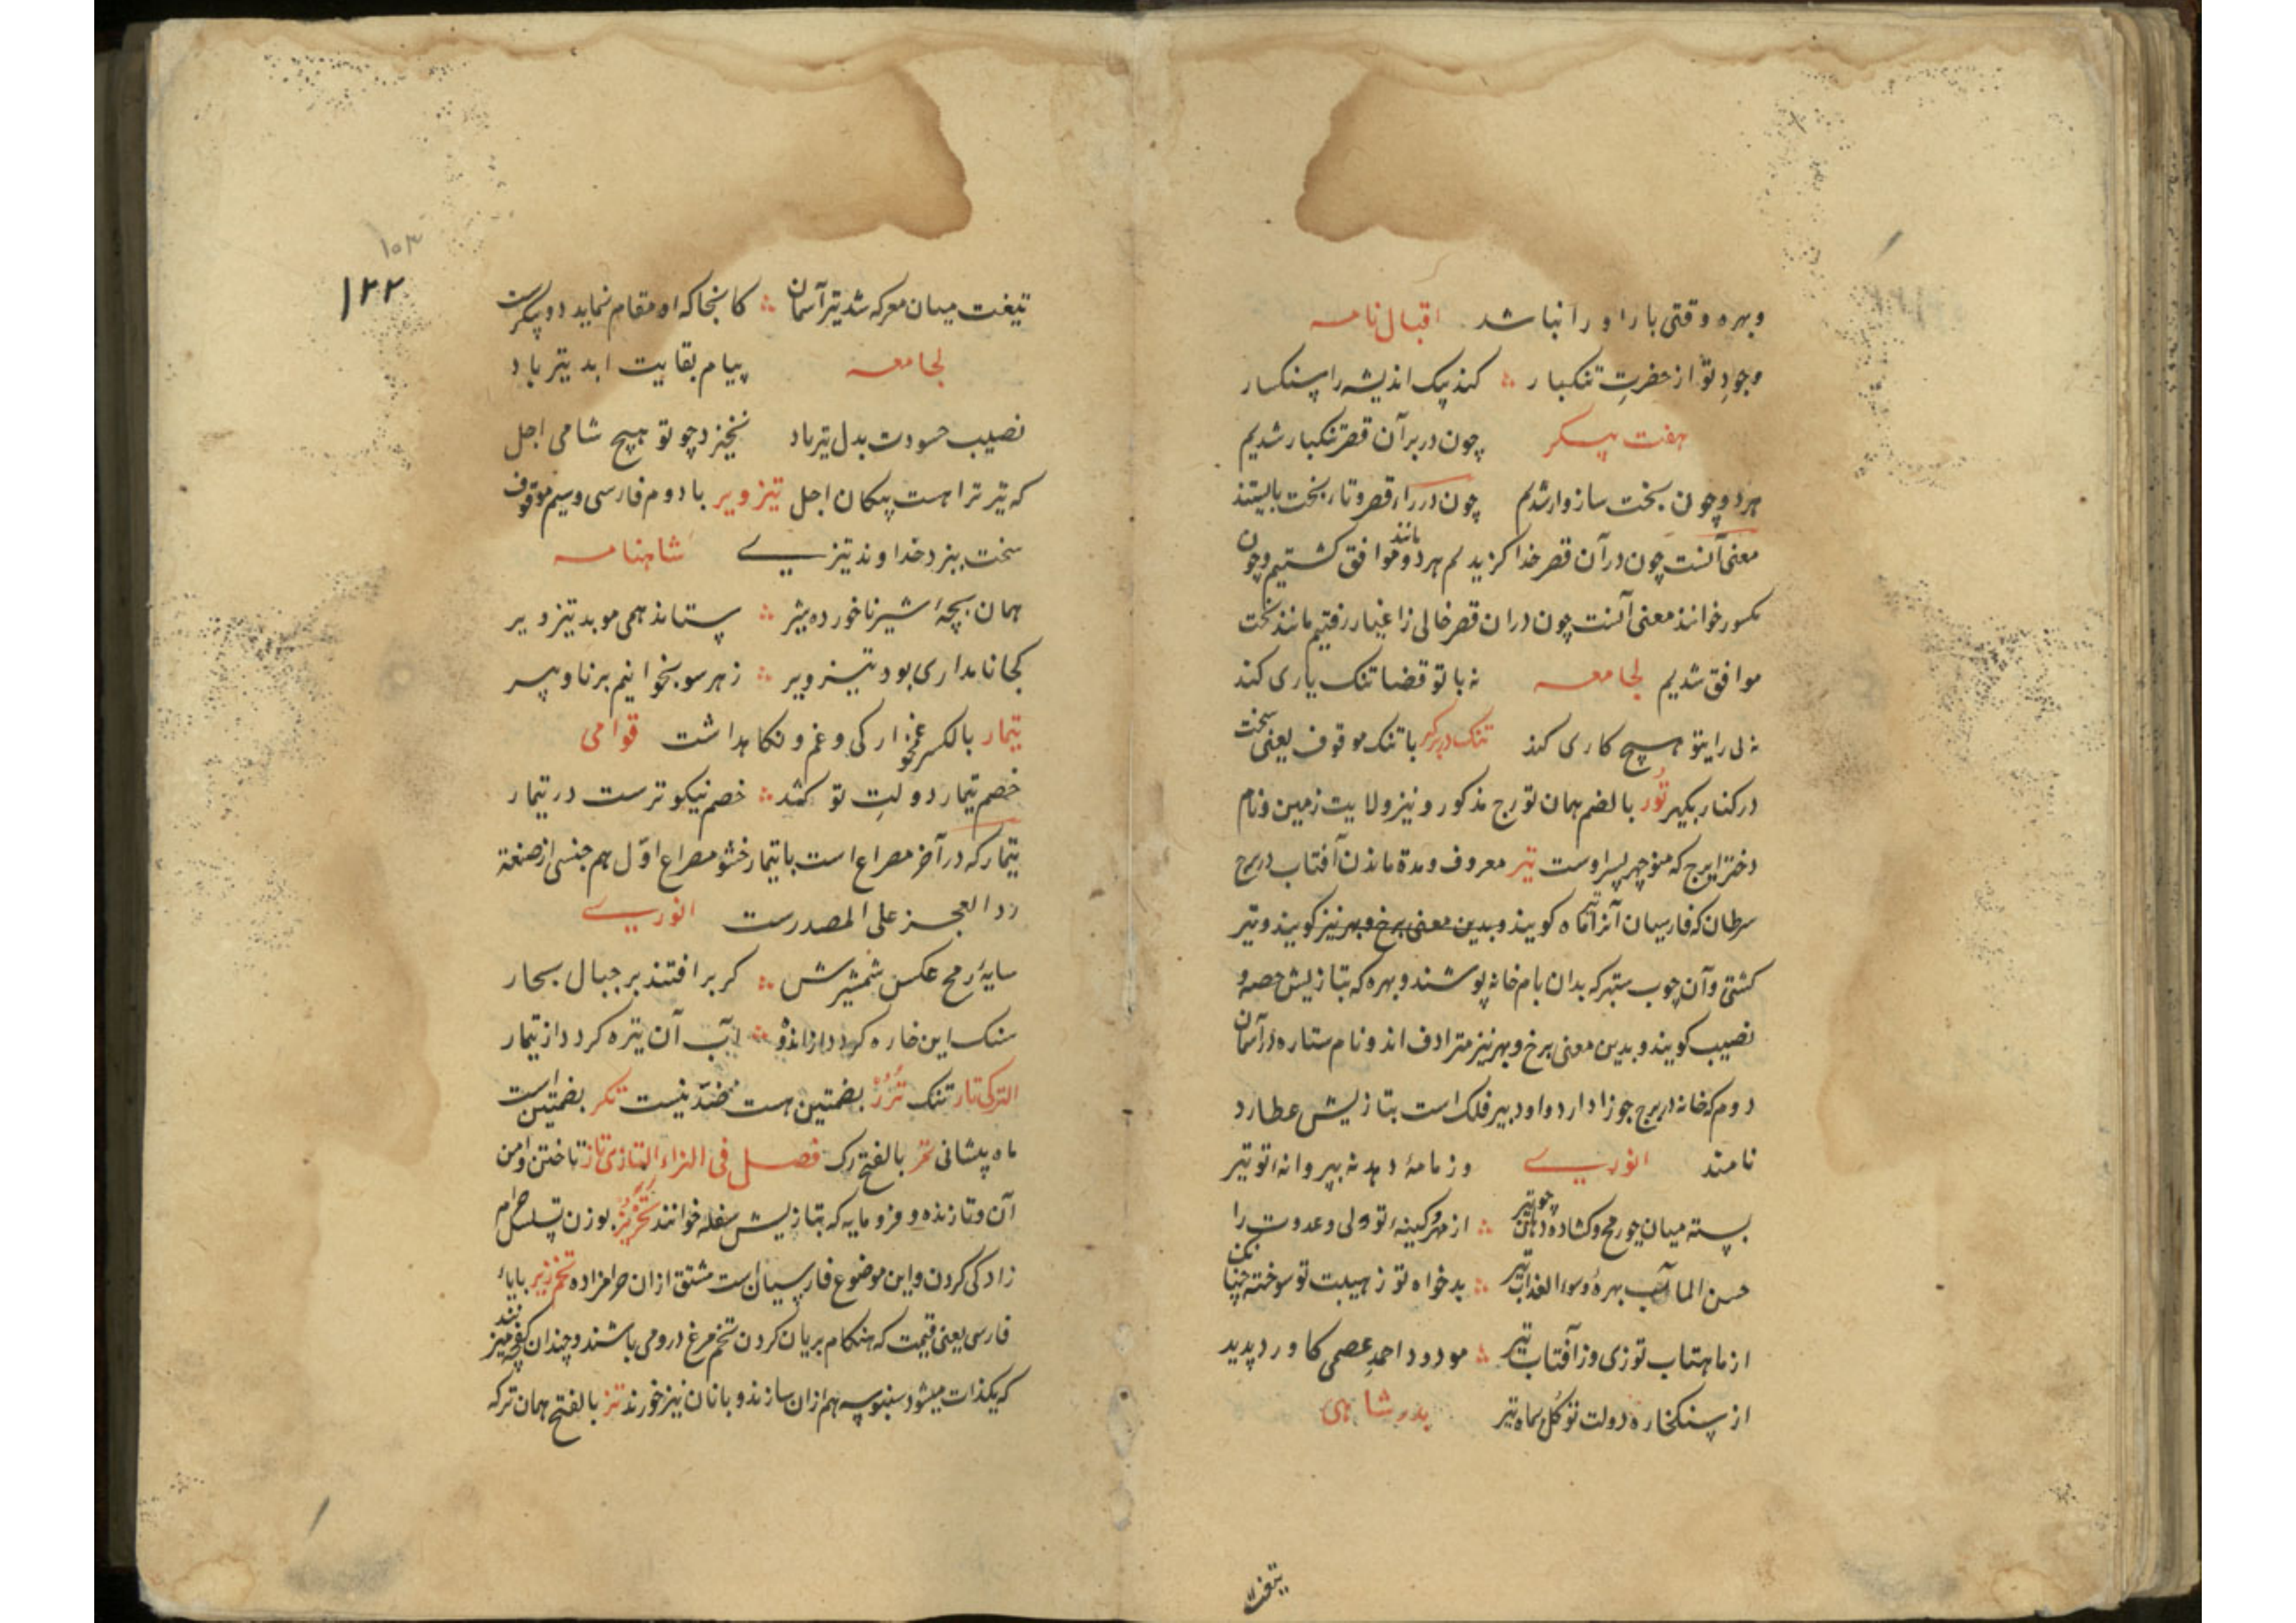 وبهره وقتی بار او را نباشد اقبال نامه
وجودِ تو از حضرتِ تنکبار کند پیک اندیشه را سنکسار
هفت پیکر چون در بر آن قصر تنکبار شدیم
هر دو چون بخت سازوار شدیم چون در قصر و تار بخت بایستند
معنی آنست چون در آن قصر خدا کزیدیم هر دو مانند موافق کشتیم و چون
مکسور خوانند معنی آنست چون در ان قصر خالی ز اغیار رفتیم مانند بخت
موافق شدیم لجامعه نه با تو قضا تنک یاری کند
نه بی رایتو هیچ کاری کند تنک در بر کیر با تنک موقوف یعنی سخت
در کنار بکیر تُور بالضم همان تورج مذکور و نیز ولایت زمین و نام
دختر ایرج که منوچهر پسر اوست تیر معروف و مدة ماندن آفتاب در برج
سرطان که فارسیان آنرا تیر ماه کویند و بدین معنی برخ و بهر نیز کویند و تیر
کشتی و آن چوب ستبر که بدان بام خانه پوشند و بهره که بتازیش حصه و
نصیب کویند و بدین معنی برخ و بهر نیز مترادف اند و نام ستاره در آسمان
دوم که خانه در برج جوزا دارد و او دبیر فلک است بتازیش عطارد
نامند انوری وز نامهٔ دهد نه بپروانه تو تیر
بسته میان چو رمح و کشاده دهان چو تیر از مهر و کینهٔ تو ولی و عدوت را
حسن المآب بهره و سوء العذاب تیر بدخواه تو ز هیبت تو سوخته چنانک
از ماهتاب توزی وز آفتاب تیر مودود احمدِ عصمی کاورد پدید
از سنکخاره دولت تو کل بماه تیر بدر شاهی
تیغت
۱۰۳
۱۲۲
تیغت میان معرکه شد تیر آسمان کانجا که او مقام نماید دو پیکرست
لجامعه پیام بقایت ابد تیر باد
نصیب حسودت بدل تیر باد نخیزد چو تو هیچ شامی اجل
که تیر ترا هست پیکان اجل تیز ویر با دوم فارسی و سیم موقوف
سخت بیزد خداوند تیزی شاهنامه
همان بچهٔ شیر ناخورده شیر ستاند همی موبد تیز ویر
کجا نامداری بود تیز ویر ز هر سو بخوانیم برنا و پیر
تیمار بالکسر غمخوارکی و غم و نکاهداشت قوامی
خصم تیمار دولتِ تو کشد خصم نیکوترست در تیمار
تیمار که در آخر مصراع است با تیمار حشو مصراع اوّل هم جنسی از صنعة
رد العجز علی المصدرست انوری
سایهٔ رمح عکس شمشیرش کر بر افتند بر جبال بحار
سنک این خاره کردد از اندوه آب آن تیره کردد از تیمار
الترکی تار تنک تُرُر بضمتین هست ضد نیست تکر بضمتین است
ماه پیشانی تمر بالفتح رک فصل فی الزاء التازی تاز تاختن و امن
آن و تازنده و فرومایه که بتازیش سفله خوانند بوزن تسلسل حرام
زادکی کردن و این موضوع فارسیان است مشتق ازان حرامزاده تخم ریز بایاء
فارسی یعنی قیمت که هنکام بریان کردن تخم مرغ درو می باشند و چندان کفچه میزنند
که یکذات میشود سنبوسه هم ازان سازند و با نان نیز خورند تز بالفتح همان ترکه